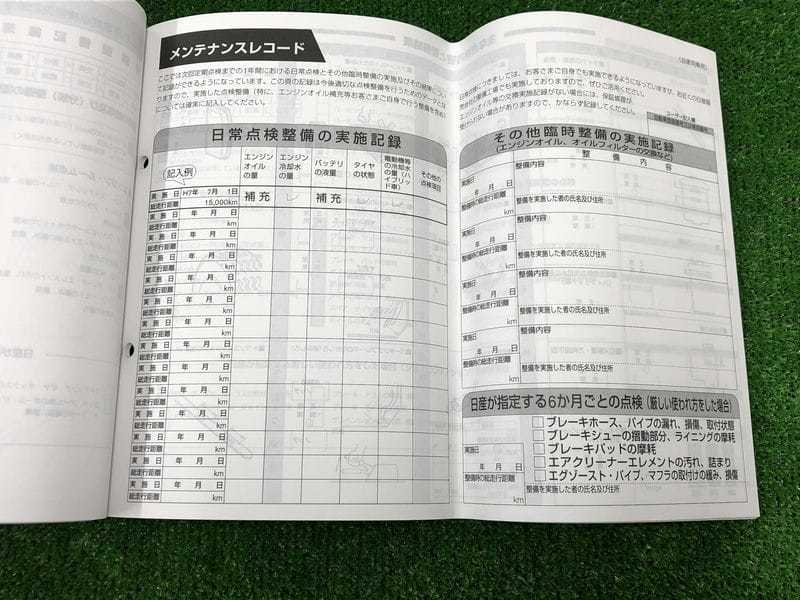 メンテナンスレコード
ここでは次回定期点検までの1年間における日常点検とその他臨時整備の実施及びその結果につい
て記録ができるようになっています。この頁の記録は今後適切な点検整備を行うためのデータとな
りますので、実施した点検整備（特に、エンジンオイル補充等お客さまご自身で行う整備を含め）
については確実に記入してください。
日常点検整備の実施記録
記入例
エンジンオイルの量
エンジン冷却水の量
バッテリの液量
タイヤの状態
電動機等の冷却水の量（ハイブリッド車）
その他の点検項目
実施日 H7年 7月 1日
総走行距離 15,000km
補充 レ 補充 レ レ
実施日 年 月 日
総走行距離 km
実施日 年 月 日
総走行距離 km
実施日 年 月 日
総走行距離 km
実施日 年 月 日
総走行距離 km
実施日 年 月 日
総走行距離 km
実施日 年 月 日
総走行距離 km
実施日 年 月 日
総走行距離 km
実施日 年 月 日
総走行距離 km
実施日 年 月 日
総走行距離 km
実施日 年 月 日
総走行距離 km
実施日 年 月 日
総走行距離 km
実施日 年 月 日
総走行距離 km
実施日 年 月 日
総走行距離 km
につきましては、お客さまご自身でも実施できるようになっていますが、お近くの日産販
売会社の整備工場でも実施しておりますので、ぜひご活用ください。
エンジンオイル等の交換実施記録がない場合には、保証修理が
受けられない場合がありますので、かならず記録してください。
ユーザー記入欄
その他臨時整備の実施記録
(エンジンオイル、オイルフィルターの交換など)
整備内容
実施日
年 月 日
整備時の総走行距離
km
整備内容
整備を実施した者の氏名及び住所
実施日
年 月 日
整備時の総走行距離
km
整備内容
整備を実施した者の氏名及び住所
実施日
年 月 日
整備時の総走行距離
km
整備内容
整備を実施した者の氏名及び住所
実施日
年 月 日
整備時の総走行距離
km
整備内容
整備を実施した者の氏名及び住所
日産が指定する6か月ごとの点検（厳しい使われ方をした場合）
実施日
年 月 日
整備時の総走行距離
km
□ブレーキホース、パイプの漏れ、損傷、取付状態
□ブレーキシューの摺動部分、ライニングの摩耗
□ブレーキパッドの摩耗
□エアクリーナーエレメントの汚れ、詰まり
□エグゾースト・パイプ、マフラの取付けの緩み、損傷
整備を実施した者の氏名及び住所